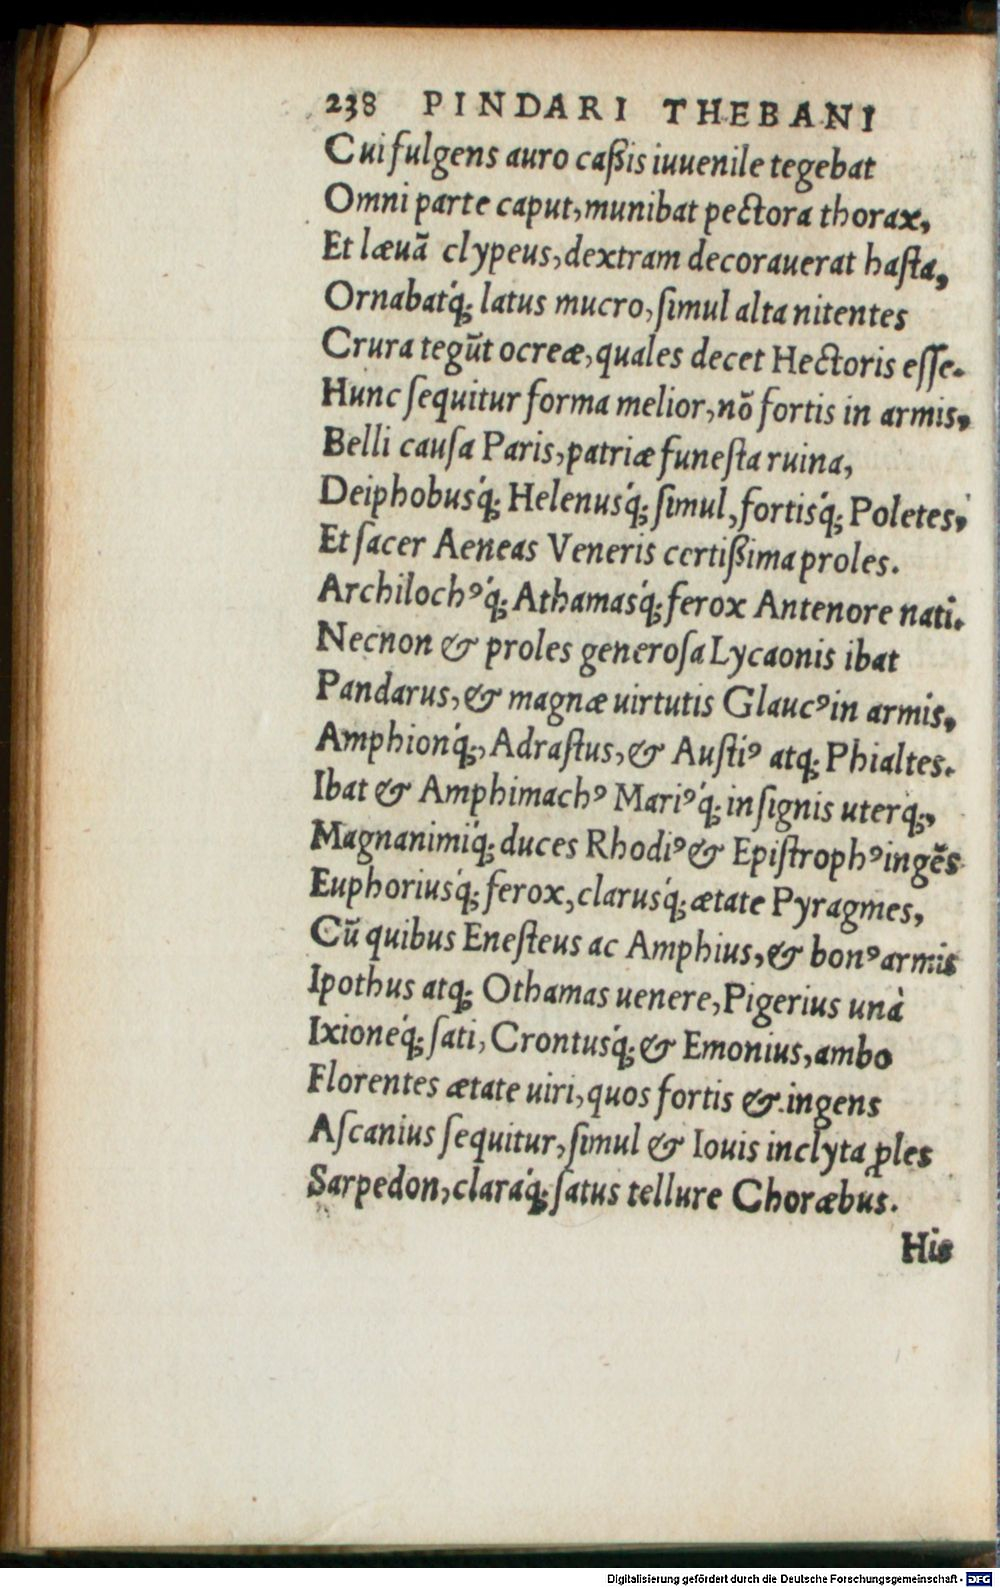 238 PINDARI THEBANI
Cui fulgens auro caßis iuuenile tegebat
Omni parte caput, munibat pectora thorax,
Et læuã clypeus, dextram decorauerat haſta,
Ornabatq́; latus mucro, ſimul alta nitentes
Crura tegũt ocreæ, quales decet Hectoris eſſe.
Hunc ſequitur forma melior, nõ fortis in armis,
Belli cauſa Paris, patriæ funeſta ruina,
Deiphobusq́; Helenusq́; ſimul, fortisq́; Poletes,
Et ſacer Aeneas Veneris certißima proles.
Archilochꝰq́; Athamasq́; ferox Antenore nati.
Necnon & proles generoſa Lycaonis ibat
Pandarus, & magnæ uirtutis Glaucꝰ in armis,
Amphionq́;, Adraſtus, & Auſtiꝰ atq; Phialtes.
Ibat & Amphimachꝰ Mariꝰq́; inſignis uterq;,
Magnanimiq́; duces Rhodiꝰ & Epiſtrophꝰ ingẽs
Euphoriusq́; ferox, clarusq́; ætate Pyragmes,
Cũ quibus Eneſteus ac Amphius, & bonꝰ armis
Ipothus atq; Othamas uenere, Pigerius unà
Ixioneq́; ſati, Crontusq́; & Emonius, ambo
Florentes ætate uiri, quos fortis & ingens
Aſcanius ſequitur, ſimul & Iouis inclyta ꝓles
Sarpedon, claraq́; ſatus tellure Choræbus.
His
Digitalisierung gefördert durch die Deutsche Forschungsgemeinschaft - DFG